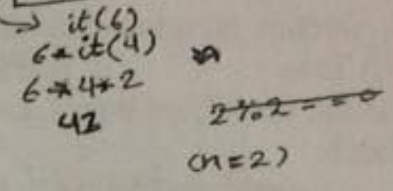 it(6)
6 * it(4)
6 * 4 * 2
2 % 2 = = 0
(n = 2)